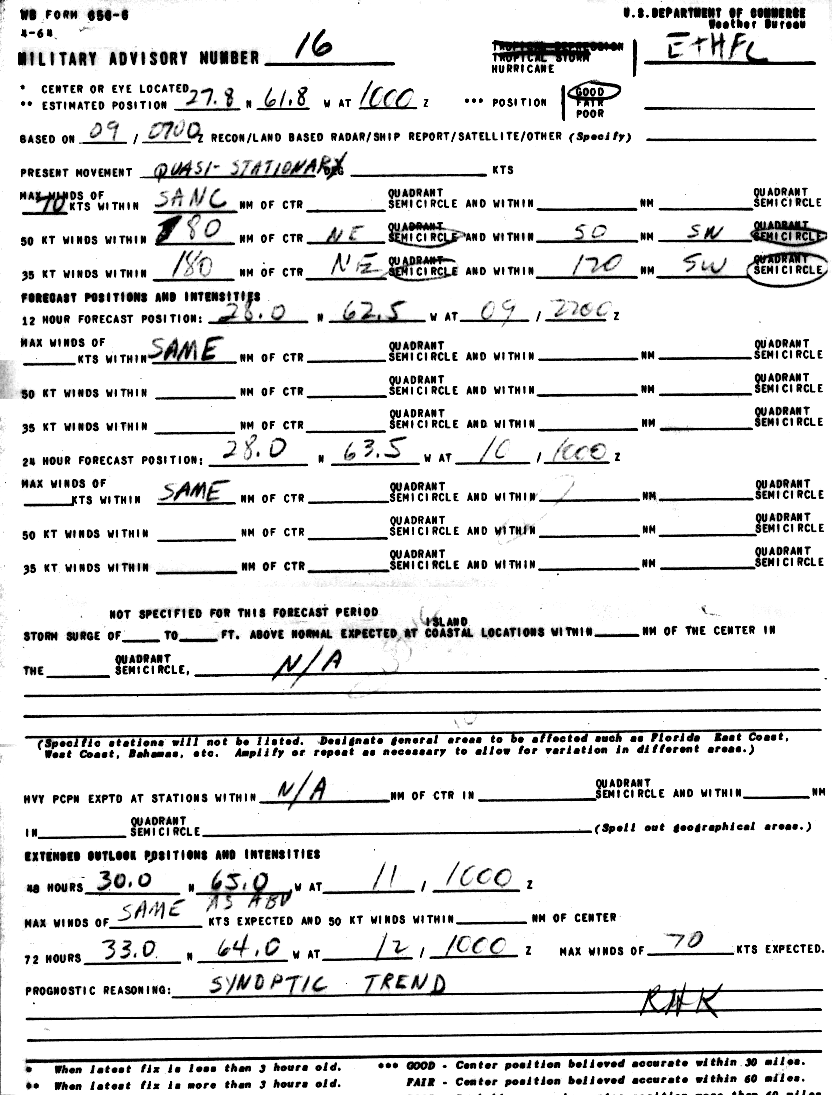 WB FORM 656-6
4-64
U.S. DEPARTMENT OF COMMERCE
Weather Bureau
MILITARY ADVISORY NUMBER 16
TROPICAL DEPRESSION
TROPICAL STORM
HURRICANE
ETHEL
* CENTER OR EYE LOCATED
** ESTIMATED POSITION 27.8 N 61.8 W AT 1000 Z *** POSITION GOOD
FAIR
POOR
BASED ON 09 / 0700 Z RECON/LAND BASED RADAR/SHIP REPORT/SATELLITE/OTHER (Specify)
PRESENT MOVEMENT QUASI-STATIONARY KTS
MAX WINDS OF QUADRANT QUADRANT
70 KTS WITHIN NM OF CTR SEMICIRCLE AND WITHIN NM SEMICIRCLE
QUADRANT QUADRANT
50 KT WINDS WITHIN 80 NM OF CTR NE SEMICIRCLE AND WITHIN 50 NM SW SEMICIRCLE
QUADRANT QUADRANT
35 KT WINDS WITHIN 180 NM OF CTR NE SEMICIRCLE AND WITHIN 120 NM SW SEMICIRCLE
FORECAST POSITIONS AND INTENSITIES
12 HOUR FORECAST POSITION: 28.0 N 62.5 W AT 09 / 2200 Z
MAX WINDS OF QUADRANT QUADRANT
KTS WITHIN SAME NM OF CTR SEMICIRCLE AND WITHIN NM SEMICIRCLE
QUADRANT QUADRANT
50 KT WINDS WITHIN NM OF CTR SEMICIRCLE AND WITHIN NM SEMICIRCLE
QUADRANT QUADRANT
35 KT WINDS WITHIN NM OF CTR SEMICIRCLE AND WITHIN NM SEMICIRCLE
24 HOUR FORECAST POSITION: 28.0 N 63.5 W AT 10 / 1000 Z
MAX WINDS OF QUADRANT QUADRANT
KTS WITHIN SAME NM OF CTR SEMICIRCLE AND WITHIN NM SEMICIRCLE
QUADRANT QUADRANT
50 KT WINDS WITHIN NM OF CTR SEMICIRCLE AND WITHIN NM SEMICIRCLE
QUADRANT QUADRANT
35 KT WINDS WITHIN NM OF CTR SEMICIRCLE AND WITHIN NM SEMICIRCLE
NOT SPECIFIED FOR THIS FORECAST PERIOD
ISLAND
STORM SURGE OF TO FT. ABOVE NORMAL EXPECTED AT COASTAL LOCATIONS WITHIN NM OF THE CENTER IN
QUADRANT
THE SEMICIRCLE, N/A
(Specific stations will not be listed. Designate general areas to be affected such as Florida East Coast,
West Coast, Bahamas, etc. Amplify or repeat as necessary to allow for variation in different areas.)
QUADRANT
HVY PCPN EXPTD AT STATIONS WITHIN N/A NM OF CTR IN SEMICIRCLE AND WITHIN NM
QUADRANT
IN SEMICIRCLE (Spell out geographical areas.)
EXTENDED OUTLOOK POSITIONS AND INTENSITIES
48 HOURS 30.0 N 65.0 W AT 11 / 1000 Z
MAX WINDS OF SAME AS ABV KTS EXPECTED AND 50 KT WINDS WITHIN NM OF CENTER
72 HOURS 33.0 N 64.0 W AT 12 / 1000 Z MAX WINDS OF 70 KTS EXPECTED.
PROGNOSTIC REASONING: SYNOPTIC TREND
RHK
* When latest fix is less than 3 hours old. *** GOOD - Center position believed accurate within 30 miles.
** When latest fix is more than 3 hours old. FAIR - Center position believed accurate within 60 miles.